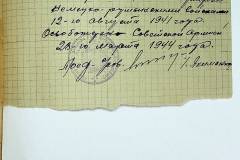 Немецко-румынскими войсками
12-го августа 1941 года.
Освобождено Советской Армией
28-го марта 1944 года.